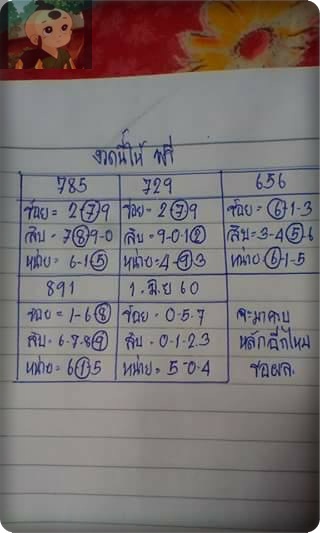 งวดนี้ให้ ฟรี
785 729 656
ร้อย = 2-7-9 ร้อย = 2-7-9 ร้อย = 6-1-3
สิบ = 7-8-9-0 สิบ = 9-0-1-2 สิบ = 3-4-5-6
หน่วย = 6-1-5 หน่วย = 4-9-3 หน่วย = 6-1-5
891 1.มิ.ย 60
ร้อย = 1-6-8 ร้อย = 0-5-7 จะมาครบ
สิบ = 6-7-8-9 สิบ = 0-1-2-3 หลักอีกไหม
หน่วย = 6-1-5 หน่วย = 5-0-4 รอผล